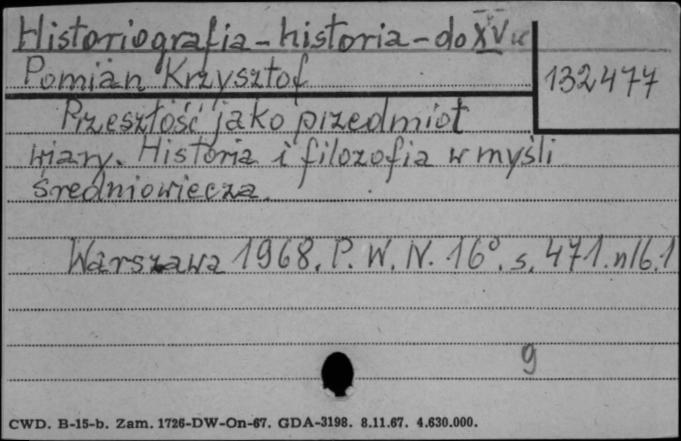 Historiografia - historia - do XV w
Pomian Krzysztof
132477
Przeszłość jako przedmiot
wiary. Historia i filozofia w myśli
średniowiecza.
Warszawa 1968. P. W. N. 16°. s. 471. nlb. 1
9
CWD. B-15-b. Zam. 1726-DW-On-67. GDA-3198. 8.11.67. 4.630.000.